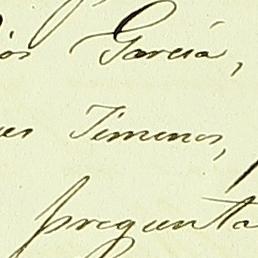 ios García,
es Jimenos,
pregunta